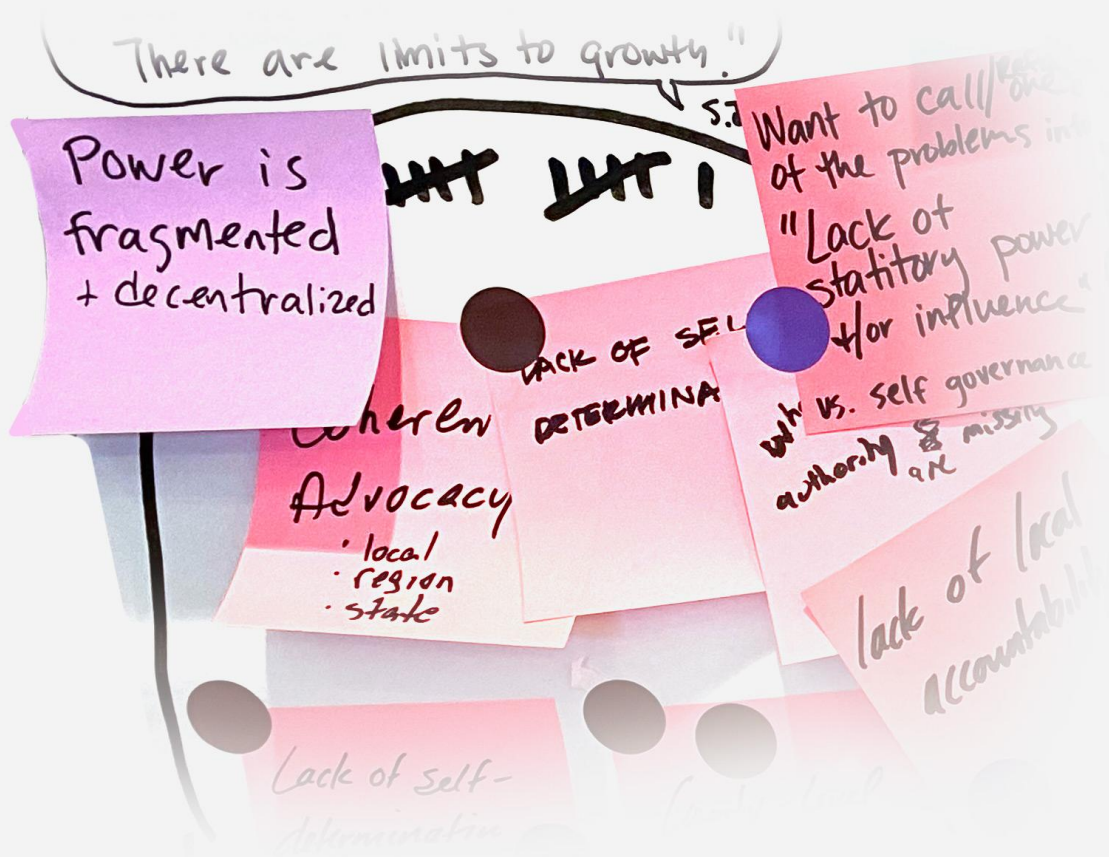 There are limits to growth."
Power is
fragmented
+ decentralized
Want to call
of the problems
"Lack of
statitory power
+/or influence"
vs. self governance
Coheren
Advocacy
· local
· region
· state
LACK OF SEL
DETERMINA
authority
are missing
lack of local
accountabili
Lack of self-
determination